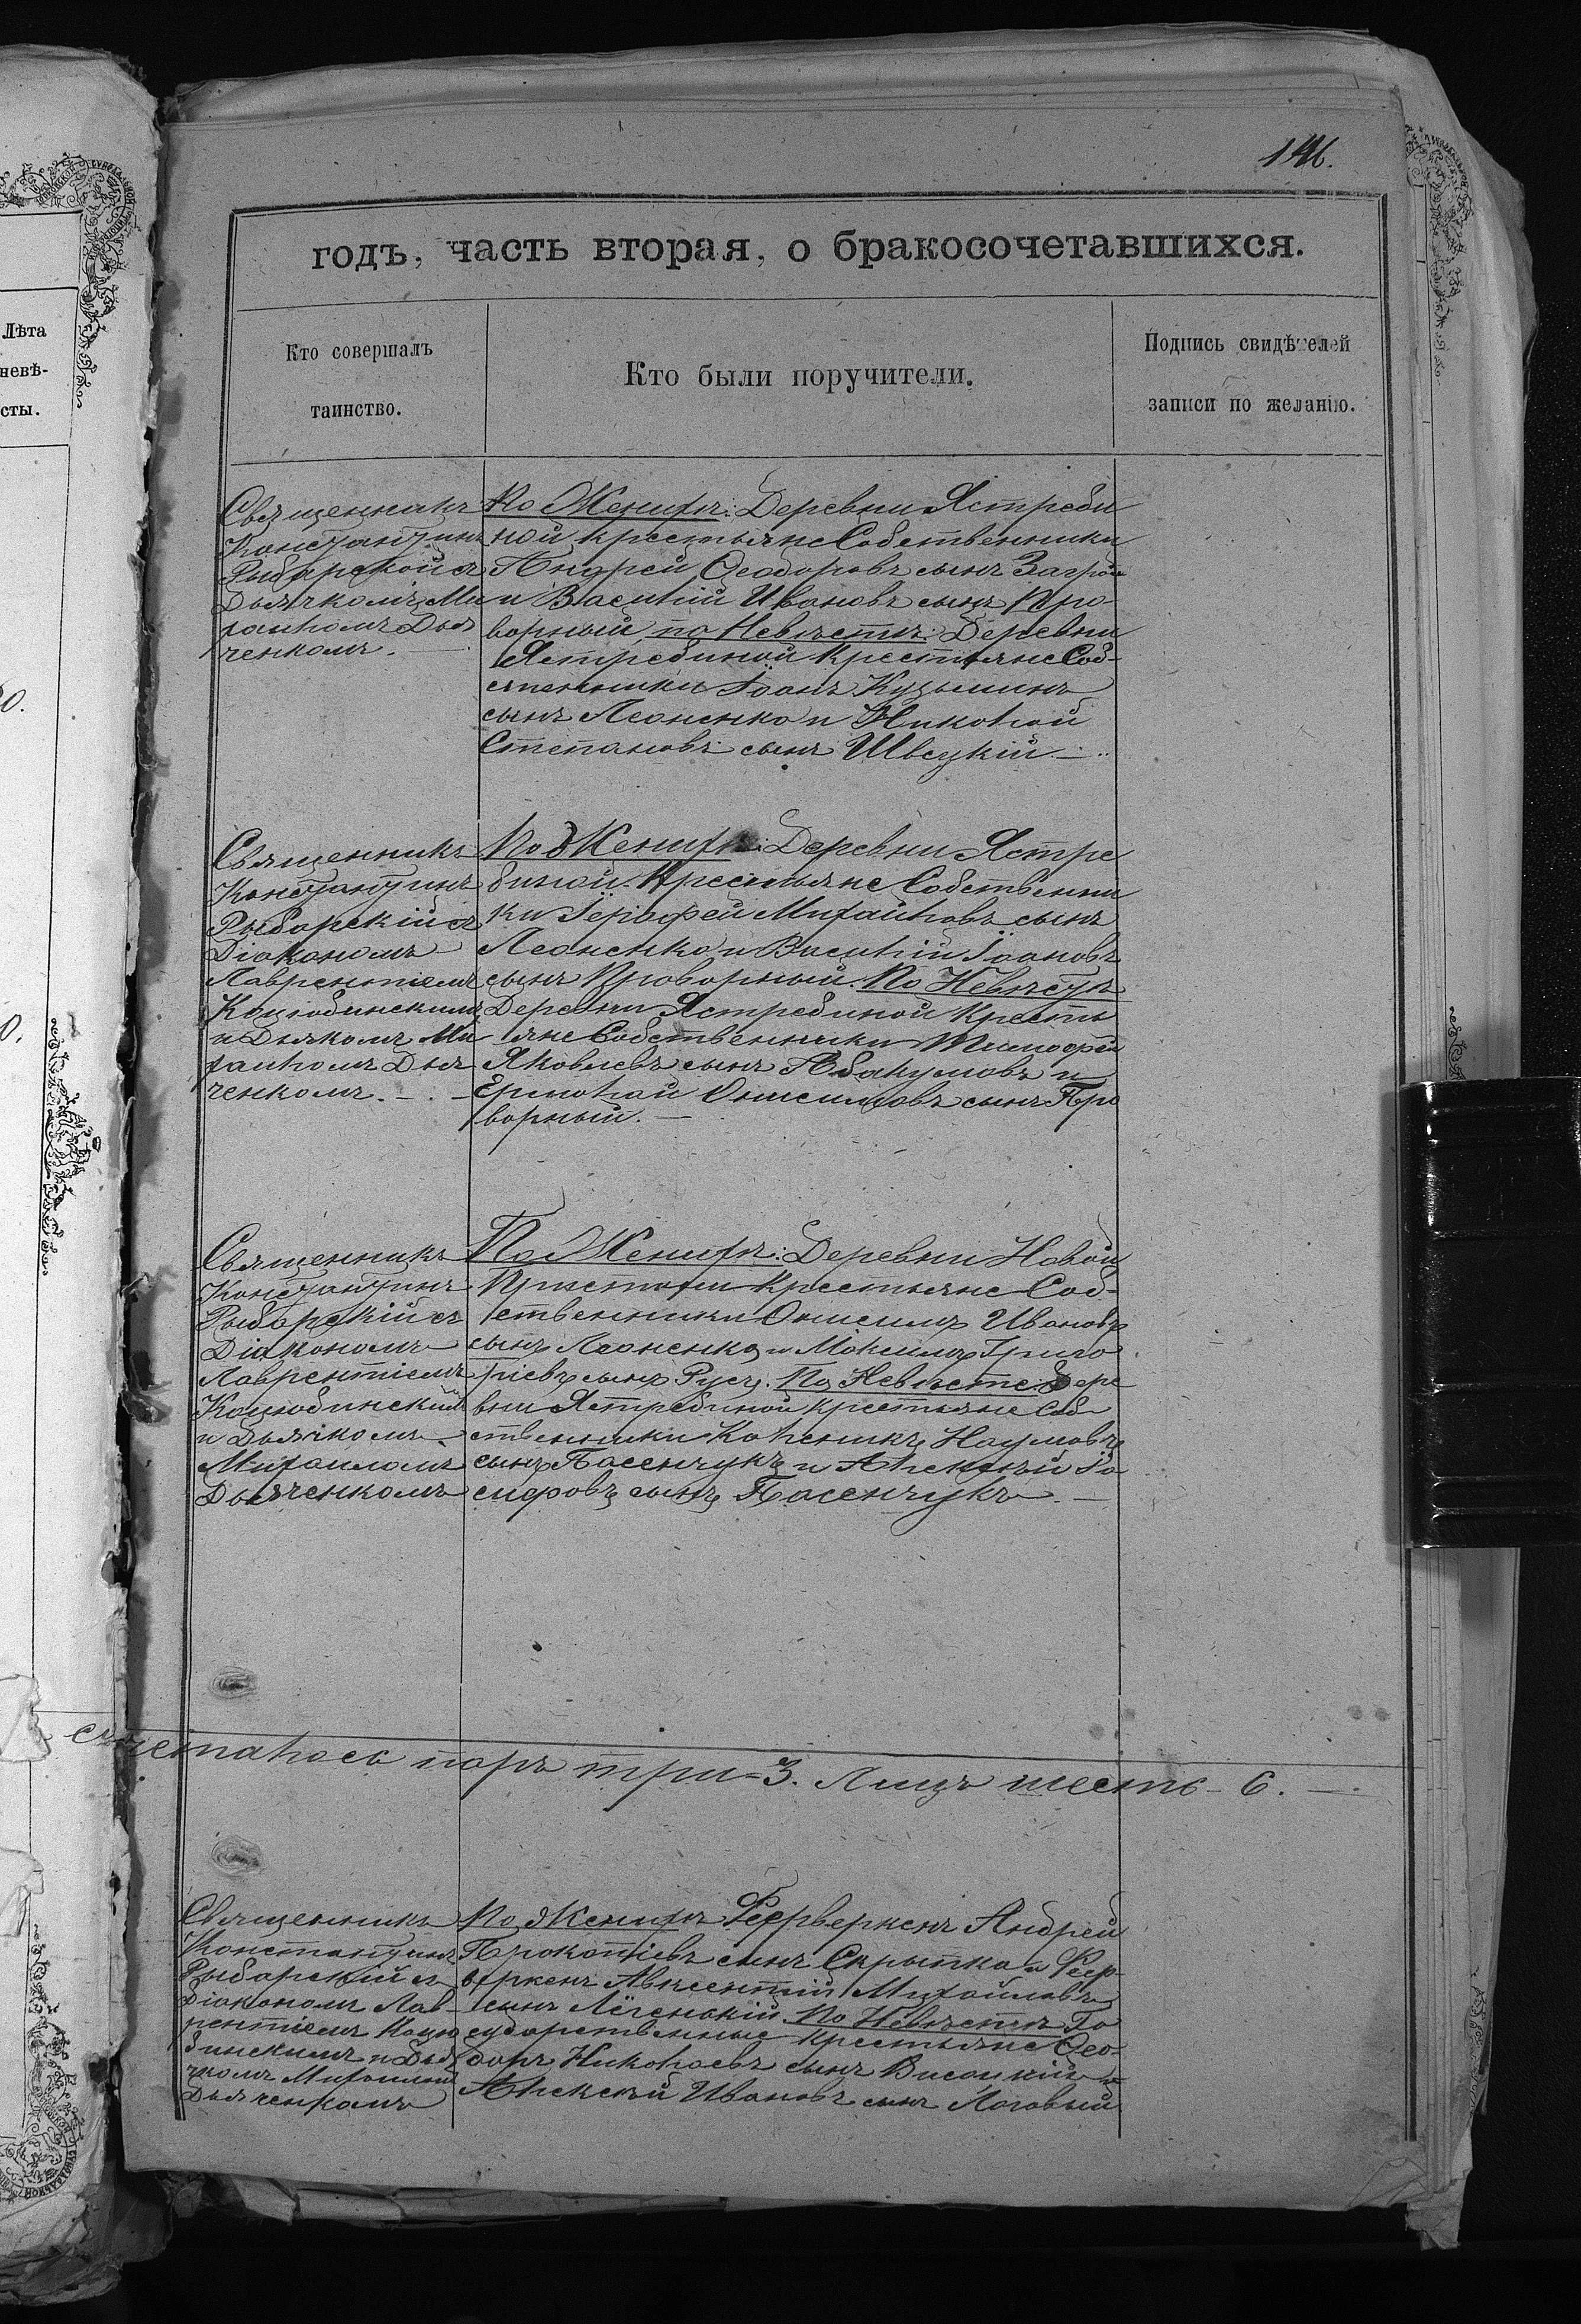 146.
годъ, часть вторая, о бракосочетавшихся.
Лѣта
невѣ-
сты.
Кто совершалъ
таинство.
Кто были поручители.
Подпись свидѣтелей
записи по желанію.
Священникъ
Константинъ
Рыбарскій съ
Дьячкомъ Ми
хаиломъ Дья
ченкомъ.
По Женихѣ: Деревни Ястреби
ной крестьяне Собственники
Андрей Ѳеодоровъ сынъ
и Василій Ивановъ сынъ Про
ворный, по Невѣстѣ: Деревни
Ястребиной Крестьяне Соб-
ственники Іоанъ Кузьминъ
сынъ Леоненко и Николай
Степановъ сынъ Швецкій.
Священникъ
Константинъ
Рыбарскій съ
Діакономъ
Лаврентіемъ
Коцюбинскимъ
и Дьякомъ Ми
хаиломъ Дья
ченкомъ. -
По Женихѣ: Деревни Ястре
биной Крестьяне Собственни
ки Іерофей Михайловъ сынъ
Леоненко и Василій Іоановъ
сынъ Проворный. По Невѣстѣ
Деревни Ястребиной Кресть
яне Собственники Тимофей
Яковлевъ сынъ Абакумовъ и
Ермолай Онисимовъ сынъ Про
ворный. -
Священникъ
Константинъ
Рыбарскій съ
Діакономъ
Лаврентіемъ
Коцюбинскимъ
и Дьячкомъ
Михаиломъ
Дьяченкомъ
По Женихѣ: Деревни Новой
Пристани Крестьяне Соб-
ственники Онисимъ Ивановъ
сынъ Леоненко и Максимъ Григо
ріевъ сынъ Русъ. По Невѣсте Дере
вни Ястребиной крестьяне Соб
ственники Каленикъ Наумовъ
сынъ Пасенчукъ и Алексѣй Іо
сифовъ сынъ Пасенчукъ. -
сочеталось паръ три - 3. Лицъ шесть - 6. -
Священникъ
Константинъ
Рыбарскій съ
Діакономъ Лав-
рентіемъ Коцю
бинскимъ и Дья
чкомъ Михаиломъ
Дьяченкомъ
По Женихѣ Феерверкенъ Андрей
Прокопіевъ сынъ Скрыпка и Феер-
веркенъ Авксентій Михайловъ
сынъ Лёгенькій. По Невѣстѣ Го
сударственные крестьяне Ѳео-
доръ Николаевъ сынъ Висоцкій и
Алексѣй Ивановъ сынъ Логовый